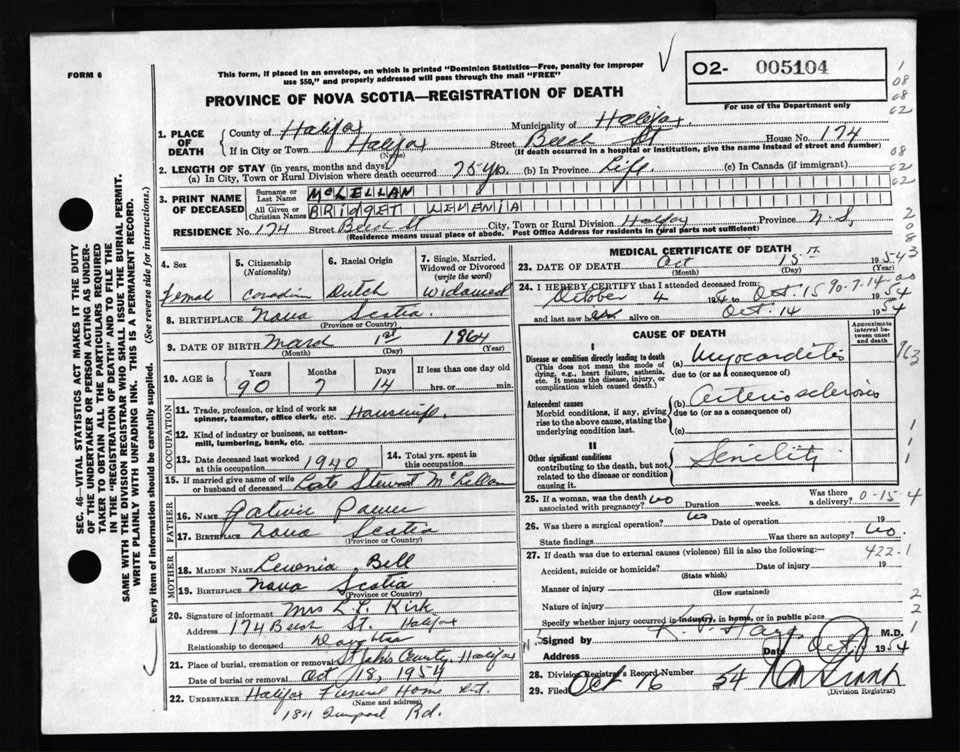 FORM 6
This form, if placed in an envelope, on which is printed "Dominion Statistics—Free, penalty for improper
use $50," and properly addressed will pass through the mail "FREE"
O2- 005104
For use of the Department only
PROVINCE OF NOVA SCOTIA—REGISTRATION OF DEATH
1. PLACE OF DEATH
County of Halifax Municipality of Halifax
If in City or Town Halifax (Name) Street Beech St House No. 174
(If death occurred in a hospital or institution, give the name instead of street and number)
2. LENGTH OF STAY (in years, months and days)
(a) In City, Town or Rural Division where death occurred 75 yrs. (b) In Province Life (c) In Canada (if immigrant)
3. PRINT NAME OF DECEASED
Surname or Last Name McLELLAN
All Given or Christian Names BRIDGET
RESIDENCE No. 174 Street Beech St City, Town or Rural Division Halifax Province N.S,
(Residence means usual place of abode. Post Office Address for residents in rural parts not sufficient)
4. Sex
female
5. Citizenship (Nationality)
6. Racial Origin
Dutch
7. Single, Married, Widowed or Divorced (write the word)
Widowed
8. BIRTHPLACE Nova Scotia
(Province or Country)
9. DATE OF BIRTH March 1st 1864
(Month) (Day) (Year)
10. AGE in Years Months Days If less than one day old
90 7 14 hrs. or min.
OCCUPATION
11. Trade, profession, or kind of work as spinner, teamster, office clerk, etc. Housewife
12. Kind of industry or business, as cotton-mill, lumbering, bank, etc.
13. Date deceased last worked at this occupation 1940
14. Total yrs. spent in this occupation
15. If married give name of wife or husband of deceased Late Stewart McLellan
FATHER
16. NAME
17. BIRTHPLACE Nova Scotia
(Province or Country)
MOTHER
18. MAIDEN NAME Bell
19. BIRTHPLACE Nova Scotia
(Province or Country)
20. Signature of informant Mrs Kirk
Address 174 Beech St. Halifax
Relationship to deceased Daughter
21. Place of burial, cremation or removal Halifax
Date of burial or removal Oct 18, 1954
22. UNDERTAKER Halifax Funeral Home
(Name and address)
Rd.
MEDICAL CERTIFICATE OF DEATH
23. DATE OF DEATH Oct 15 1954
(Month) (Day) (Year)
24. I HEREBY CERTIFY that I attended deceased from:
October 4 1954 to Oct. 15 1954
and last saw her alive on Oct. 14 1954
90-7-14
CAUSE OF DEATH
Approximate interval between onset and death
I
Disease or condition directly leading to death
(This does not mean the mode of dying, e.g., heart failure, asthenia, etc. It means the disease, injury, or complication which caused death.)
(a) Myocarditis
due to (or as a consequence of)
Antecedent causes
Morbid conditions, if any, giving rise to the above cause, stating the underlying condition last.
(b) Arteriosclerosis
due to (or as a consequence of)
(c)
II
Other significant conditions
contributing to the death, but not related to the disease or condition causing it.
Senility
25. If a woman, was the death associated with pregnancy? no Duration weeks. Was there a delivery?
0-15-4
26. Was there a surgical operation? no Date of operation 19
State findings Was there an autopsy? no
27. If death was due to external causes (violence) fill in also the following:—
422.1
Accident, suicide or homicide? Date of injury 19
(State which)
Manner of injury
(How sustained)
Nature of injury
Specify whether injury occurred in industry, in home, or in public place
Signed by M.D.
Address Date Oct 1954
28. Division Registrar's Record Number
29. Filed Oct 16 54
(Division Registrar)
SEC. 46—VITAL STATISTICS ACT MAKES IT THE DUTY
OF THE UNDERTAKER OR PERSON ACTING AS UNDER-
TAKER TO OBTAIN ALL THE PARTICULARS REQUIRED
IN THE "REGISTRATION OF DEATH" AND TO FILE THE
SAME WITH THE DIVISION REGISTRAR WHO SHALL ISSUE THE BURIAL PERMIT.
WRITE PLAINLY WITH UNFADING INK. THIS IS A PERMANENT RECORD.
Every item of information should be carefully supplied. (See reverse side for instructions.)